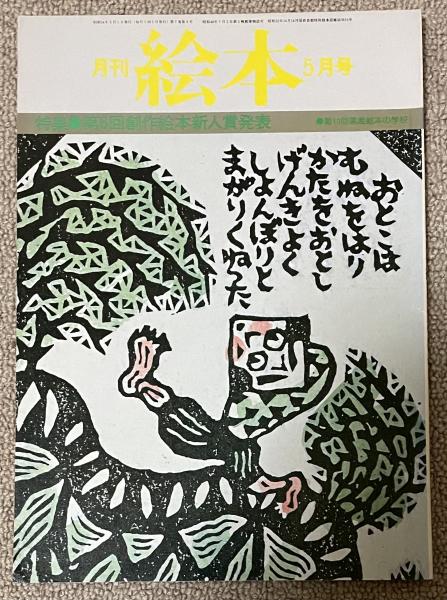 月刊 絵本 5月号
特集●第6回創作絵本新人賞発表
●第10回黒姫絵本の学校
おとこは
むねをはり
かたをおとし
げんきよく
しょんぼりと
まがりくねった